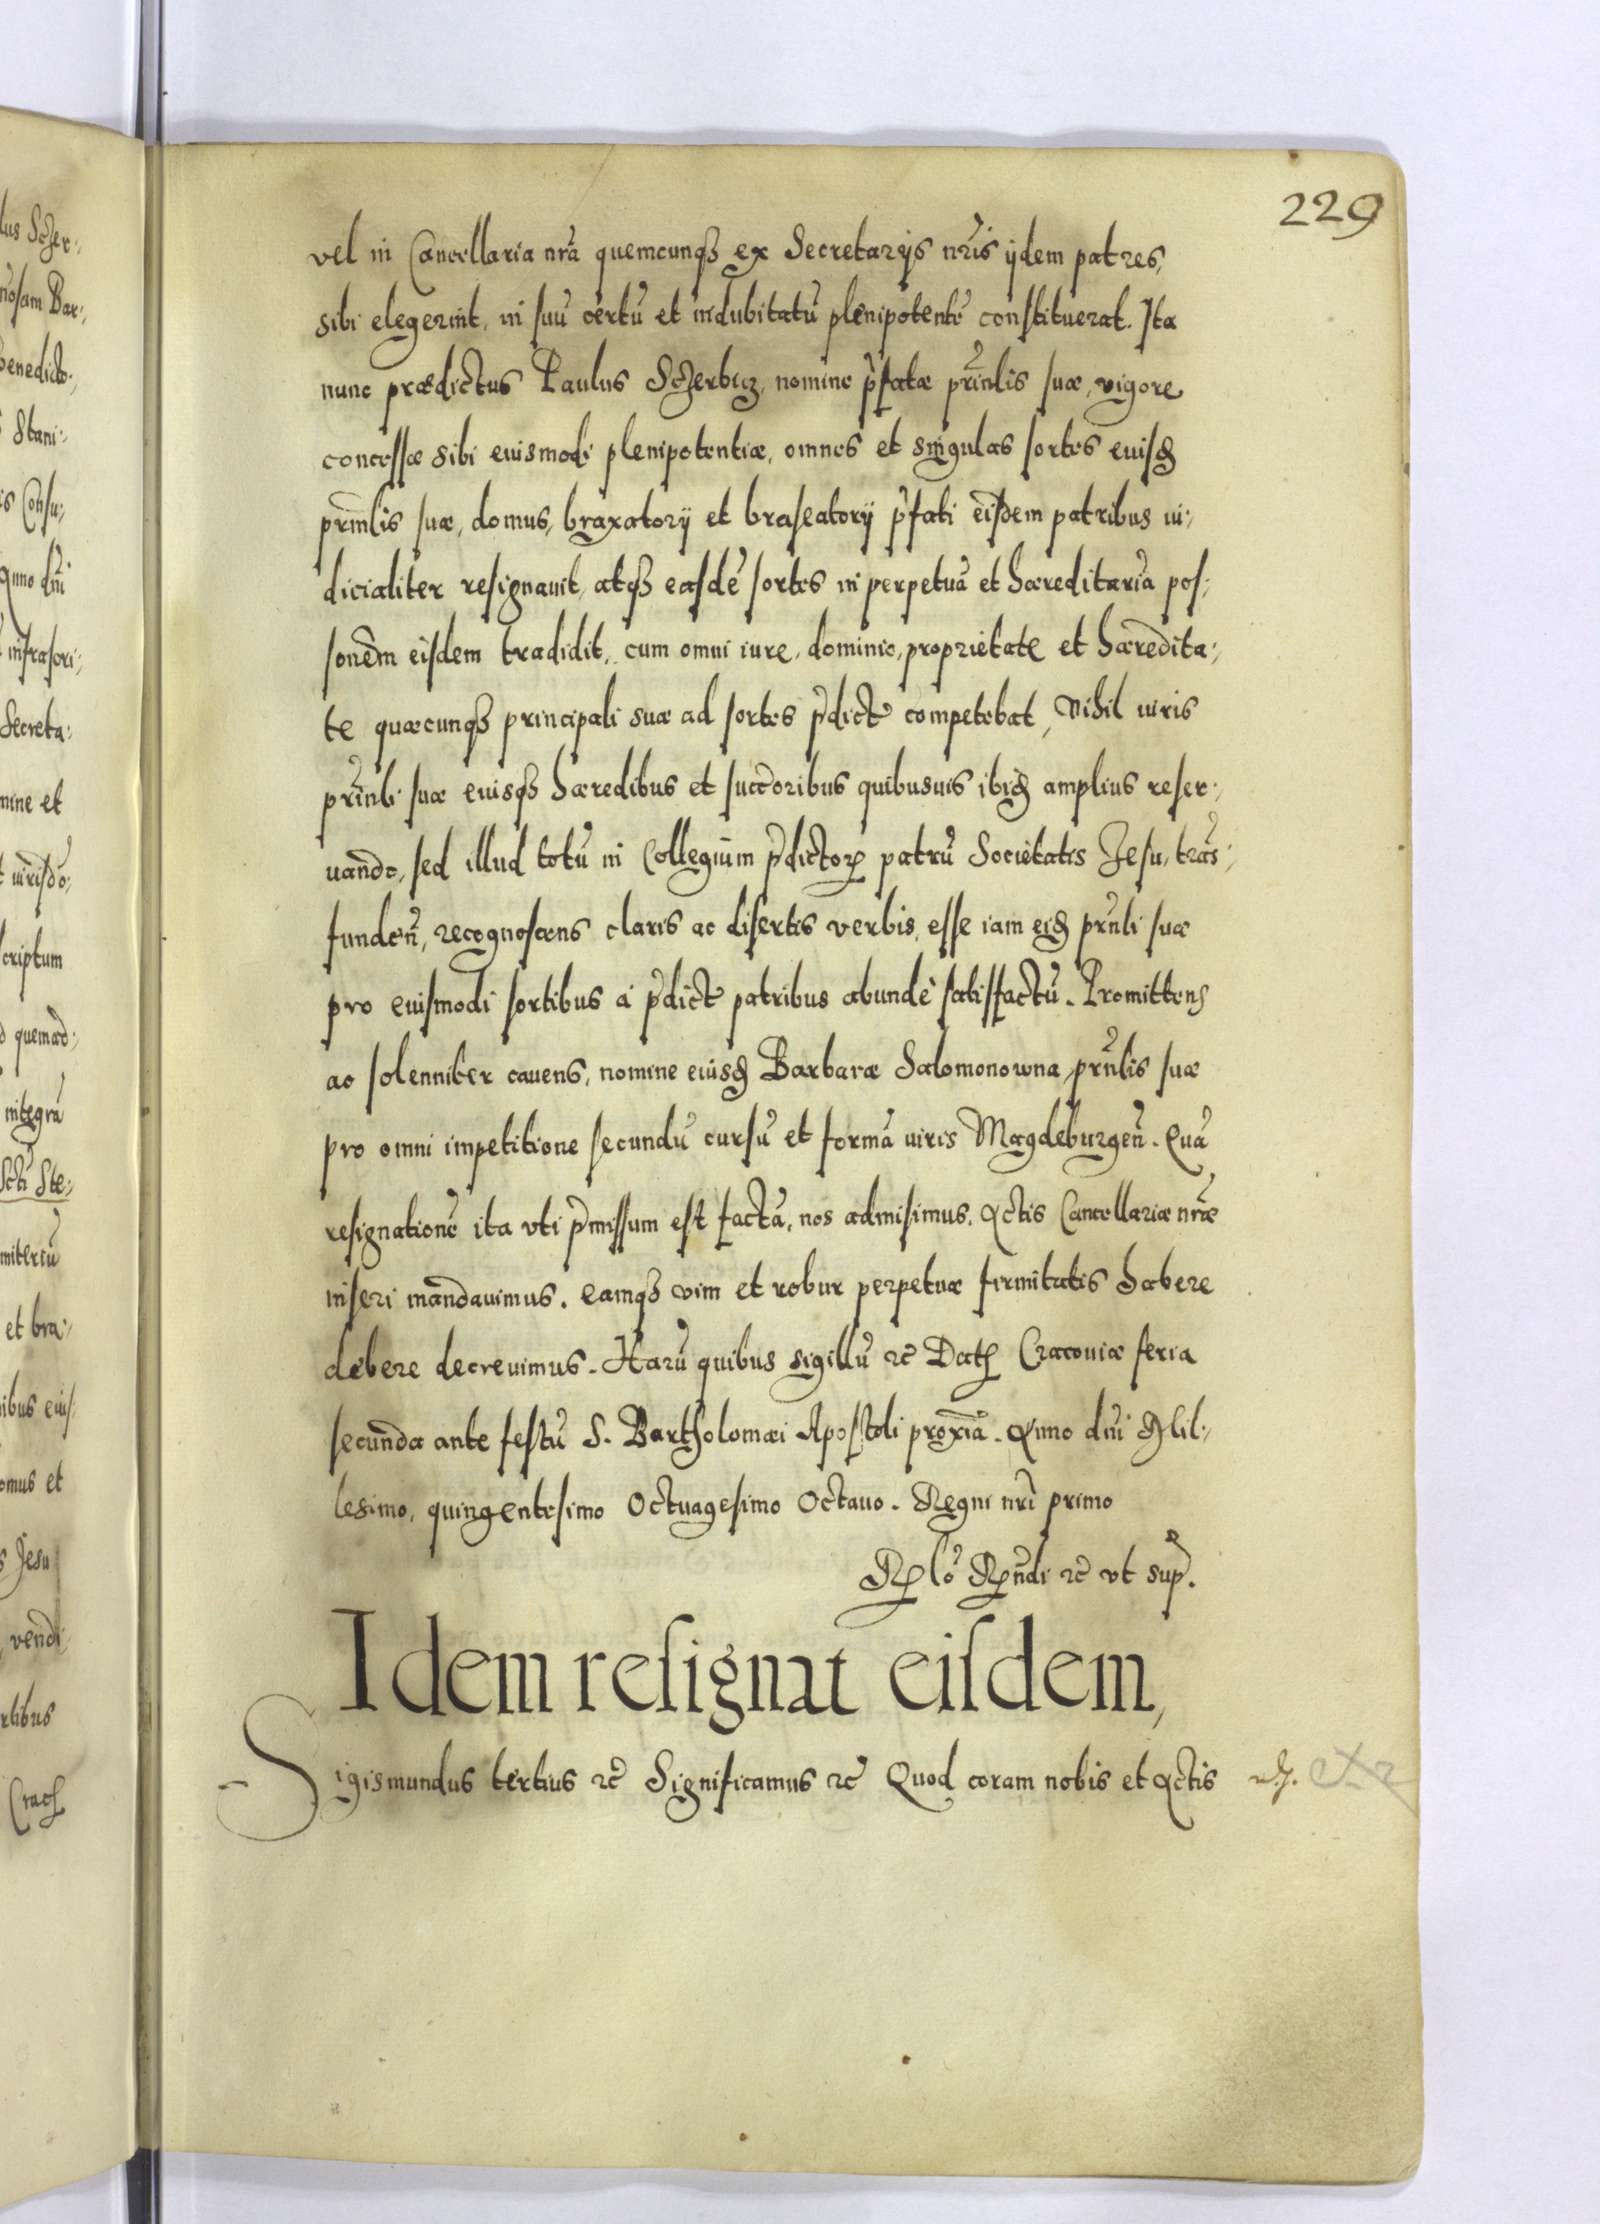 229
vel in Cancellaria nrã quemcunqȝ ex Secretarijs nr̃is ijdem patres,
sibi elegerint, in suũ certũ et indubitatũ plenipotentẽ constituerat. Ita
nunc prædictus Paulus Sczerbicz, nomine p̃fatæ prĩnlis suæ, vigore
concessæ sibi euismodi plenipotentiæ, omnes et singulas sortes euisđ
prĩnlis suæ, domus, braxatorij et braseatorij p̃fati eisdem patribus iu:
dicialiter resignauit, atqȝ easdẽ sortes in perpetuã et hæreditariã pos:
sonẽm eisdem tradidit, cum omni iure, dominio, proprietate et hæredita:
te quæcunqȝ principali suæ ad sortes p̃dict competebat, Nihil iuris
prĩnli suæ euisqȝ hæredibus et succoribus quibusuis ibiđ amplius reser:
uando, sed illud totũ in Collegium p̃dictoꝝ patrũ Societatis Jesu, trãs:
fundeñ, recognoscens claris ac disertis verbis, esse iam eiđ prñli suæ
pro euismodi sortibus à p̃dict patribus abundè satisfactũ. Promittens
ac solenniter cauens, nomine eiusđ Barbaræ Salomonowna prñlis suæ
pro omni impetitione secundũ cursũ et formã iuris Magdeburgeñ. Quã
resignationẽ ita vti p̃missum est factã, nos admisimus, Actis Cancellariæ nræ̃
inseri mandauimus. eamqȝ vim et robur perpetuæ firmitatis habere
debere decreuimus. Harũ quibus sigillũ ꝛc̃ Datꝭ Cracouiæ feria
secunda ante festũ S. Bartholomæi Apostoli proxĩa. Anno dñi Mil:
lesimo, quingentesimo Octuagesimo Octauo. Regni nr̃i primo
Rꝑ lõ Rñdi ꝛc̃ vt sup̃.
Idem resignat eisdem,
Sigismundus tertius ꝛc̃ Significamus ꝛc̃ Quod coram nobis et Actis